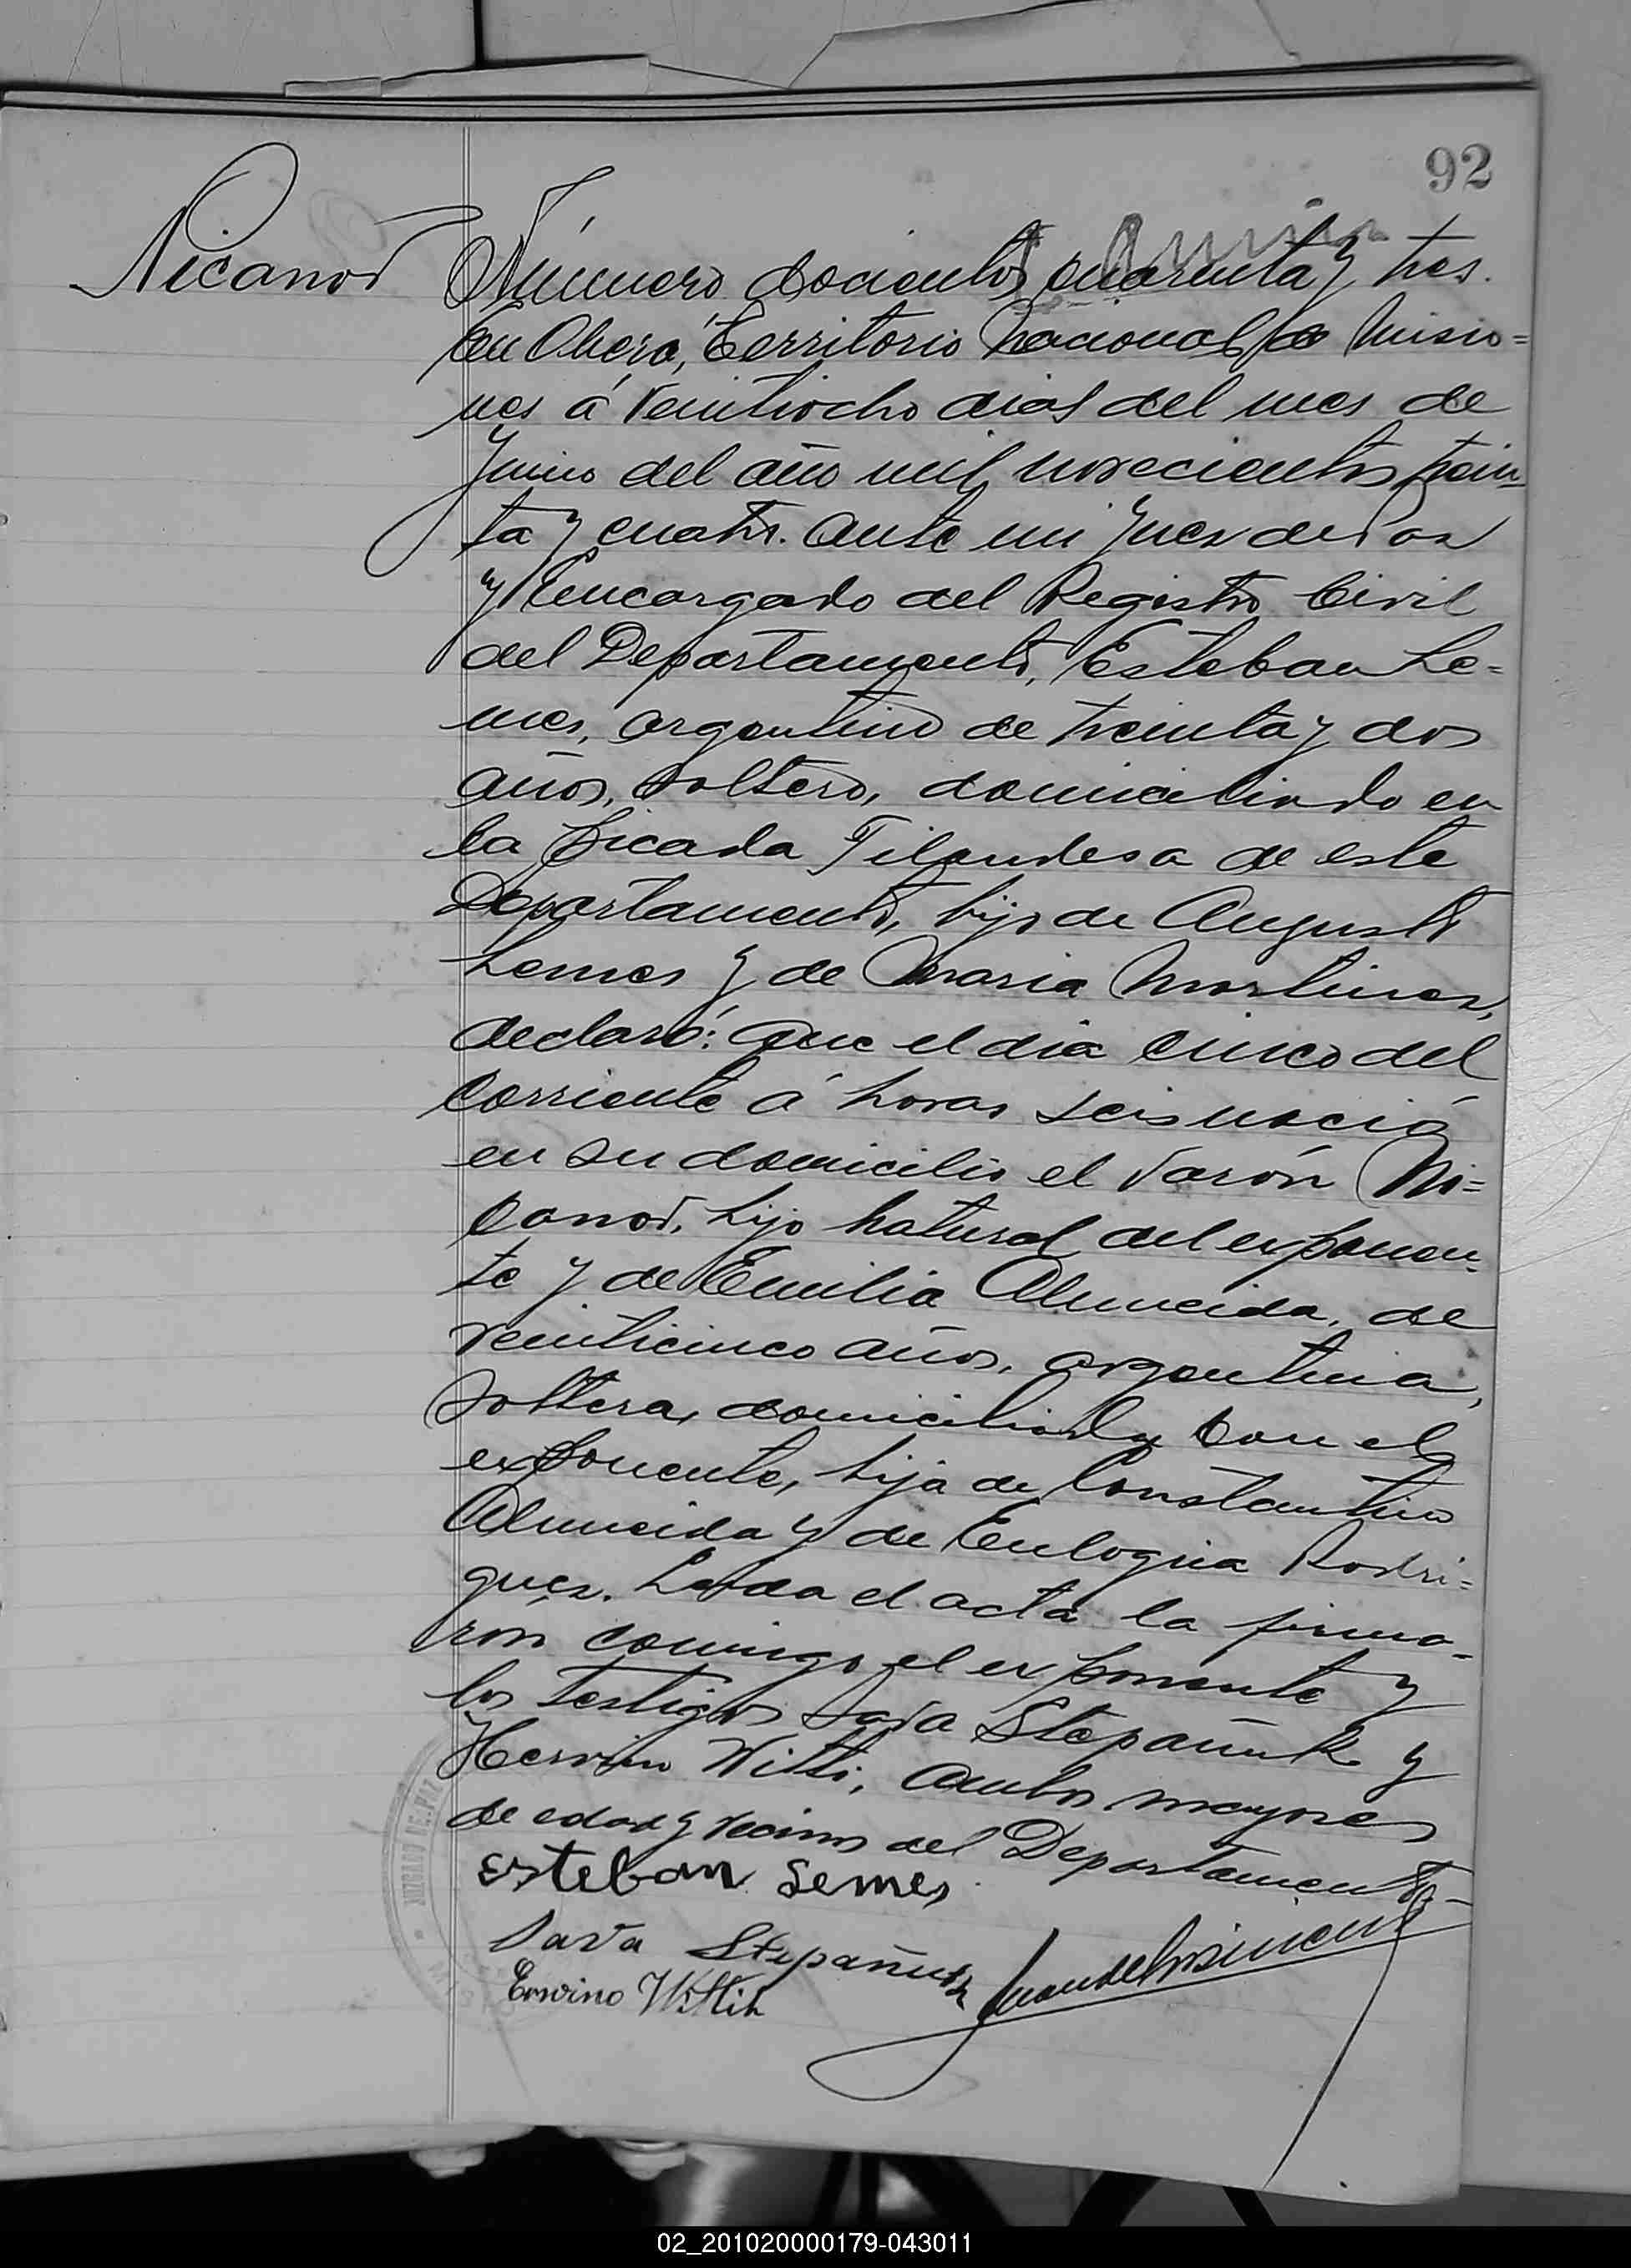 92
Nicanor
Número docientos cuarenta y tres.
En Oberá, Territorio Nacional de Misio=
nes á veintiocho dias del mes de
Junio del año mil novecientos trein=
ta y cuatro. ante mi Juez de Paz
y Encargado del Registro Civil
del Departamento, Esteban Le=
mes, argentino de treinta y dos
años, soltero, domiciliado en
la picada Filandesa de este
Departamento, hijo de Augusto
Lemes y de Maria Martinez,
declaró: Que el dia cinco del
corriente á horas seis nació
en su domicilio el varón Ni=
canor, hijo natural del exponen=
te y de Emilia Almeida, de
veinticinco años, argentina,
soltera, domiciliada con el
exponente, hija de Constantino
Almeida y de Eulogia Rodri=
guez. Leida el acta la firma-
rón conmigo el exponente y
los testigos Sava Stepañuk y
Hervino Witti, ambos mayores
de edad y vecinos del Departamento-
Esteban Lemes
Sava Stepañuk
Erwino Wittih
JUZGADO DE PAZ
02_201020000179-043011